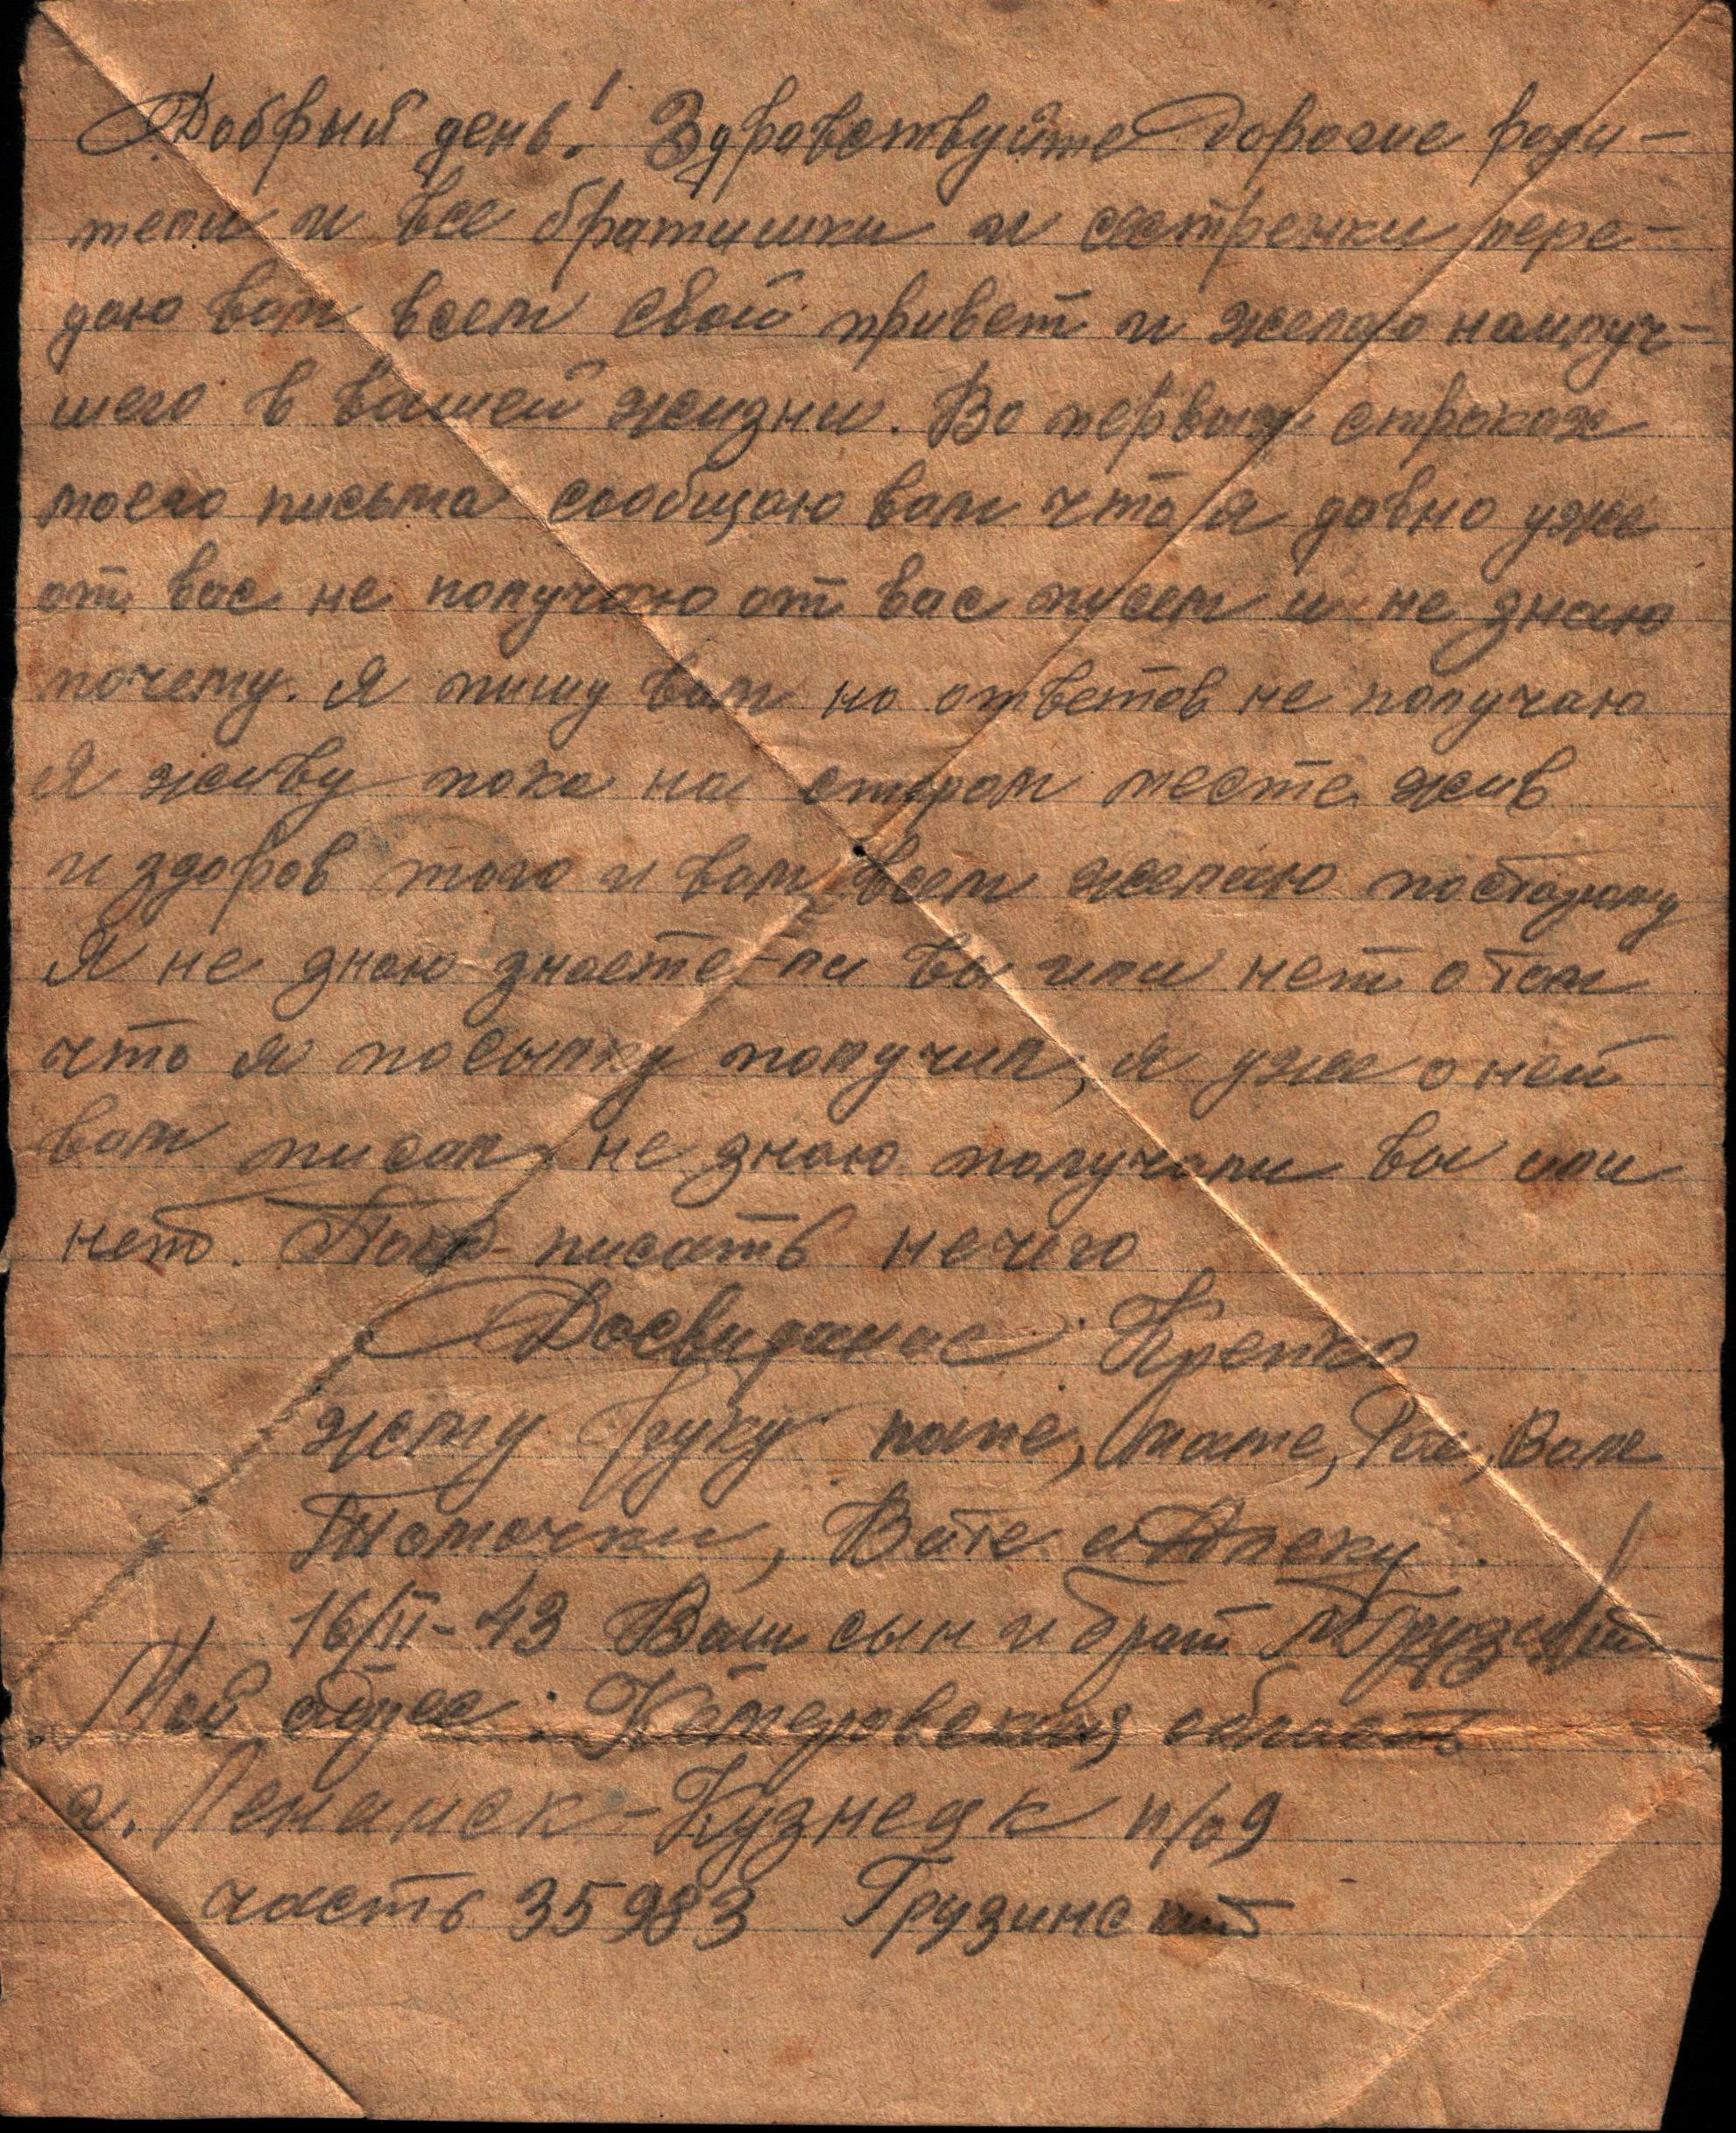 Добрый день! Здравствуйте дорогие роди-
тели и все братишки и сестренки пере-
даю вам всем свой привет и желаю наилуч-
шего в вашей жизни. Во первых строках
моего письма сообщаю вам что я давно уже
от вас не получаю от вас писем и не знаю
почему. Я пишу вам но ответов не получаю
Я живу пока на старом месте жив
и здоров того и вам всем желаю
Я не знаю знаете-ли вы или нет о том
что я посылку получил, я уже о ней
вам писал, не знаю получали вы или
нет. Пока писать нечего
Досвидание Крепко
жму руку папе, маме, Рае, Вале
Томочки, Вите и Алеку.
16/II-43 Ваш сын и брат Грузинский
Мой адрес: Кемеровская область
г. Ленинск-Кузнецк п/о 9
часть 35983 Грузинский